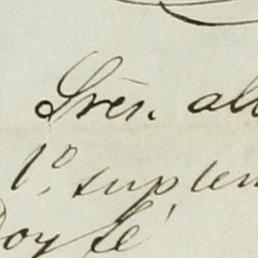 Sres. al
1º suplen
Doy fé